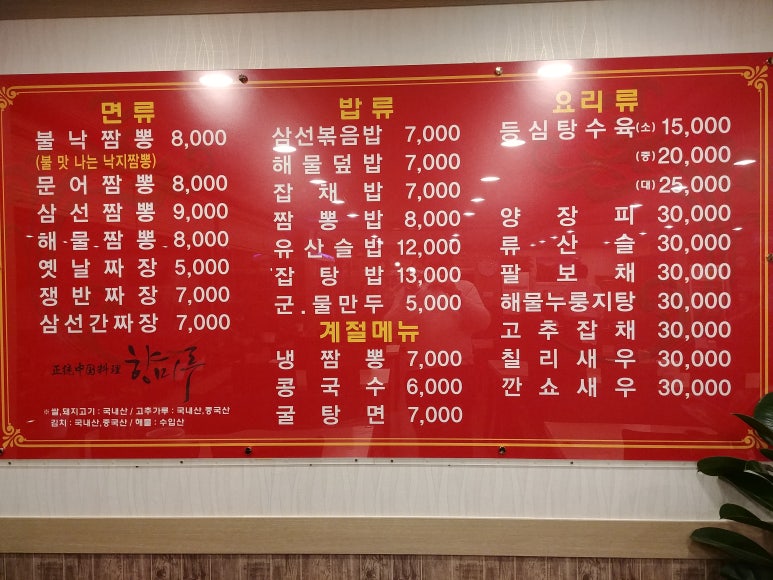 면류
불낙짬뽕 8,000
(불 맛 나는 낙지짬뽕)
문어짬뽕 8,000
삼선짬뽕 9,000
해물짬뽕 8,000
옛날짜장 5,000
쟁반짜장 7,000
삼선간짜장 7,000
正統中国料理 향미루
※쌀,돼지고기 : 국내산 / 고추가루 : 국내산,중국산
김치 : 국내산,중국산 / 해물 : 수입산
밥류
삼선볶음밥 7,000
해물덮밥 7,000
잡채밥 7,000
짬뽕밥 8,000
유산슬밥 12,000
잡탕밥 13,000
군.물만두 5,000
계절메뉴
냉짬뽕 7,000
콩국수 6,000
굴탕면 7,000
요리류
등심탕수육(소) 15,000
(중) 20,000
(대) 25,000
양장피 30,000
류산슬 30,000
팔보채 30,000
해물누룽지탕 30,000
고추잡채 30,000
칠리새우 30,000
깐쇼새우 30,000